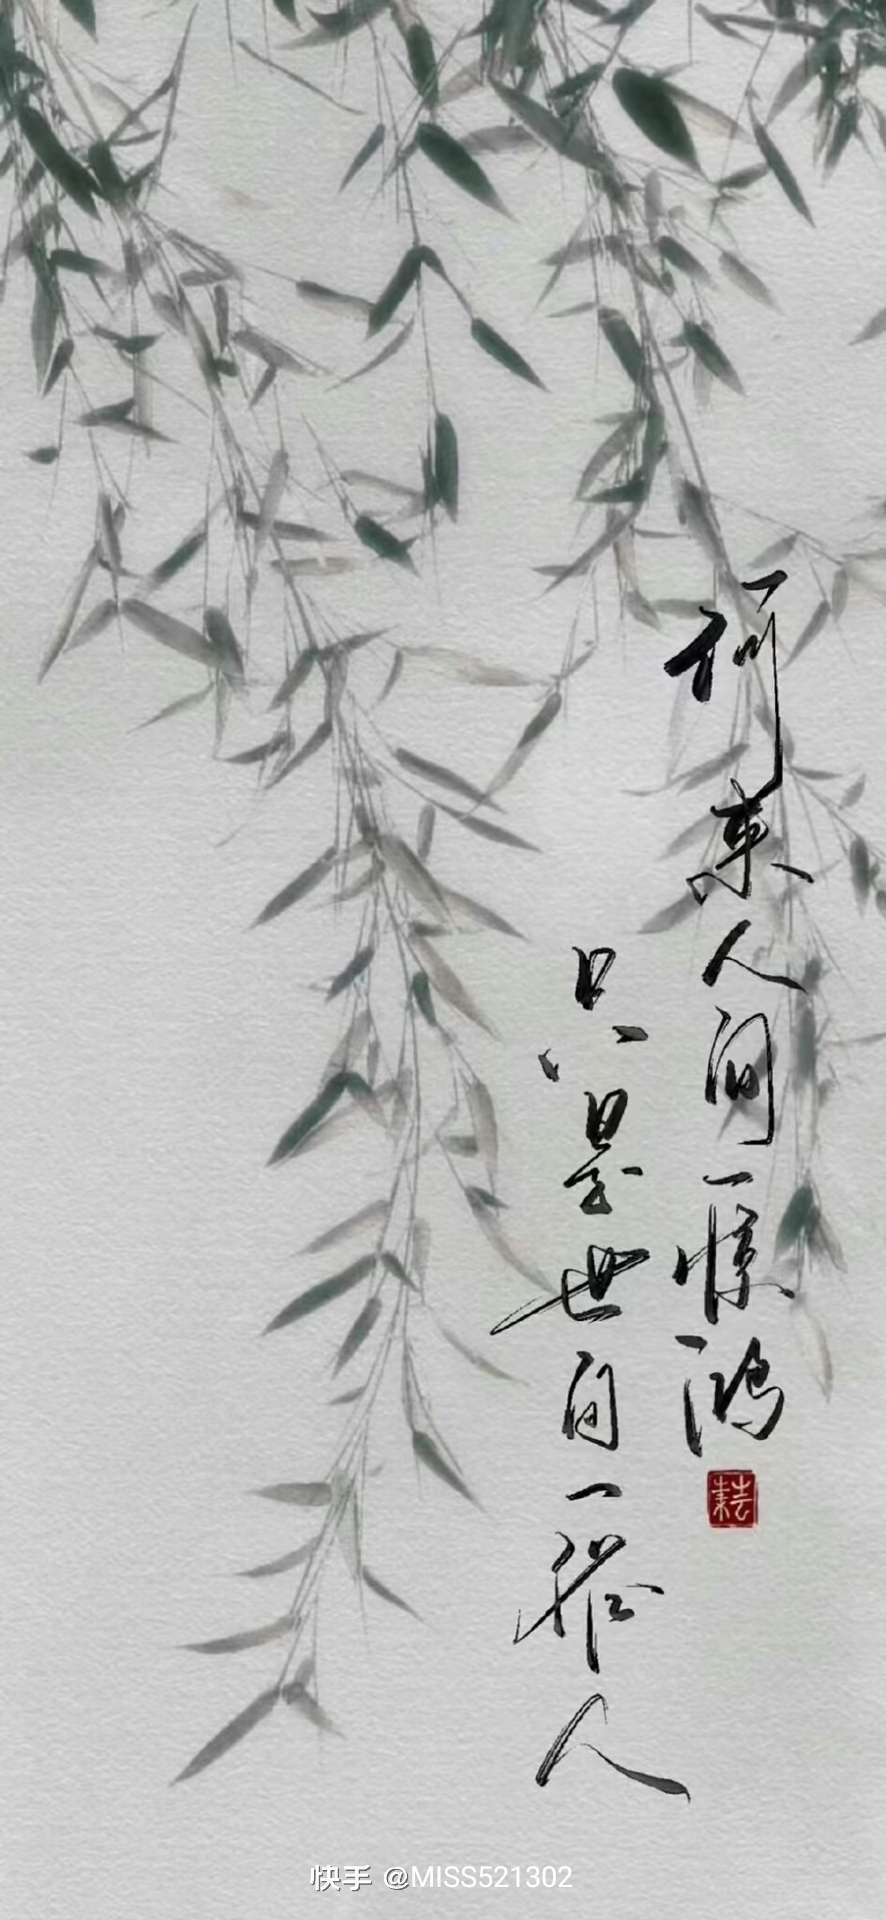 何来人间一惊鸿
只是世间一俗人
快手 @MISS521302